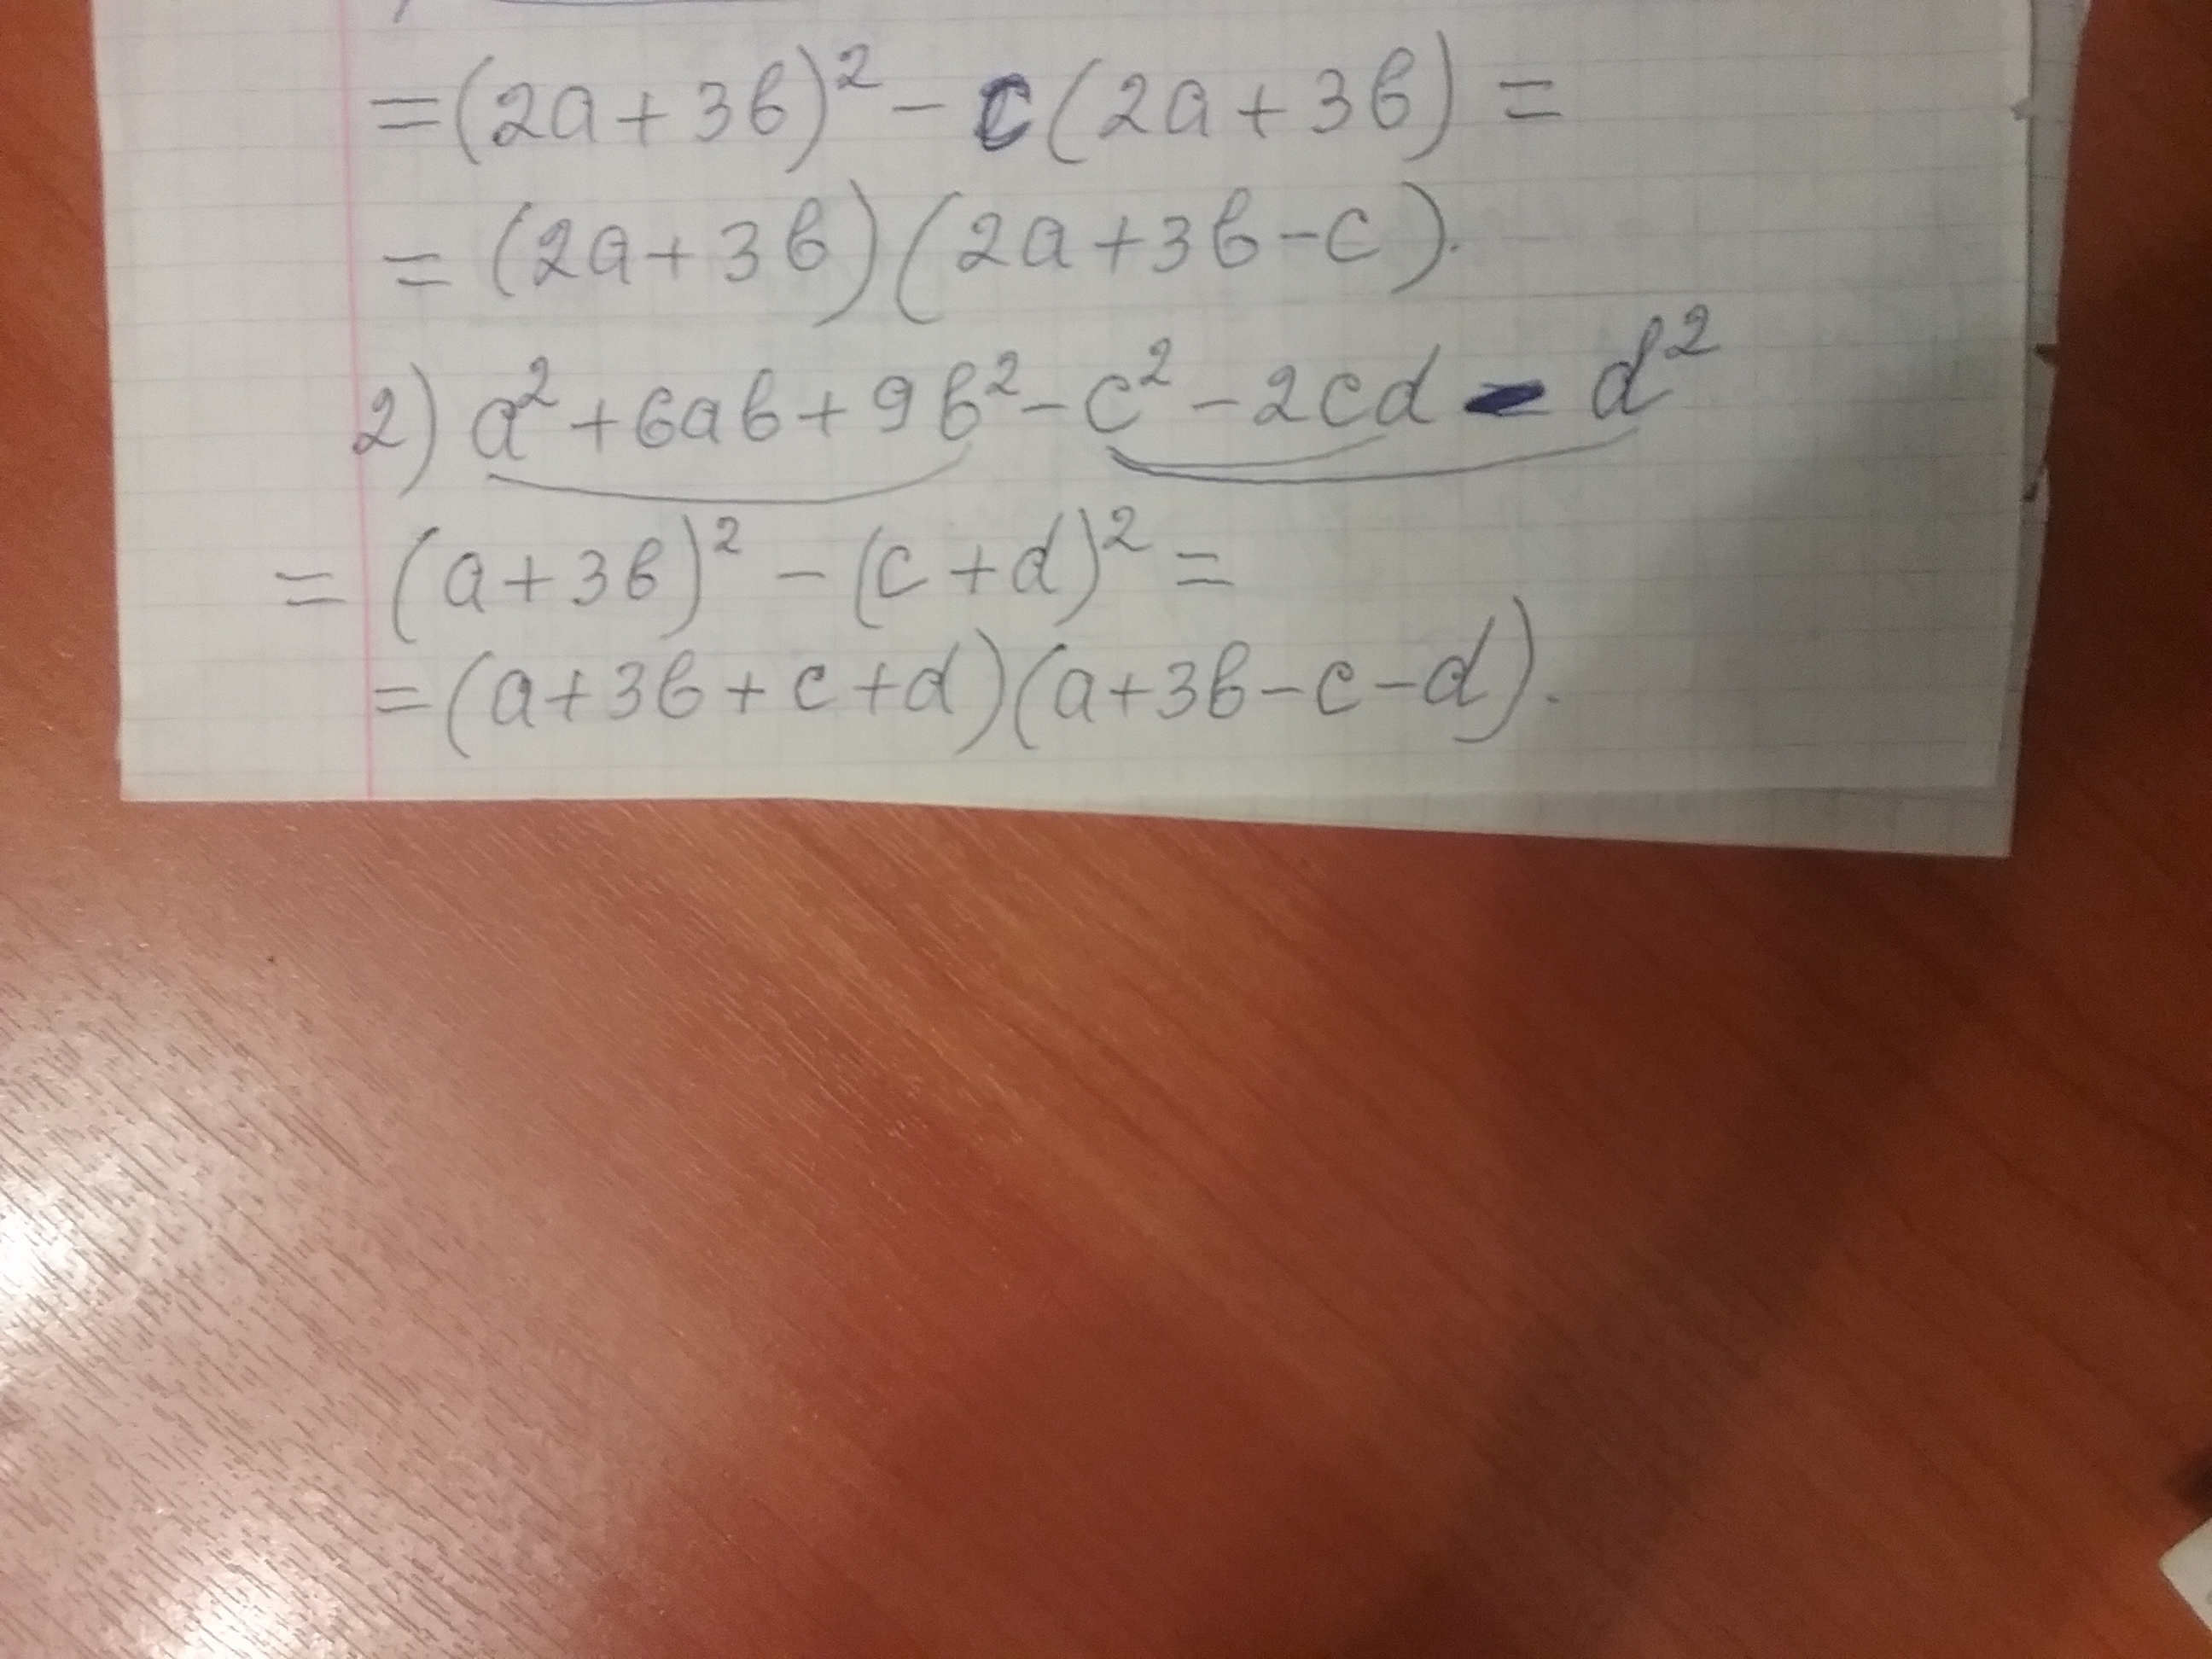 =(2a+3b)²-c(2a+3b)=
=(2a+3b)(2a+3b-c).
2) a²+6ab+9b²-c²-2cd-d²
=(a+3b)²-(c+d)²=
=(a+3b+c+d)(a+3b-c-d).